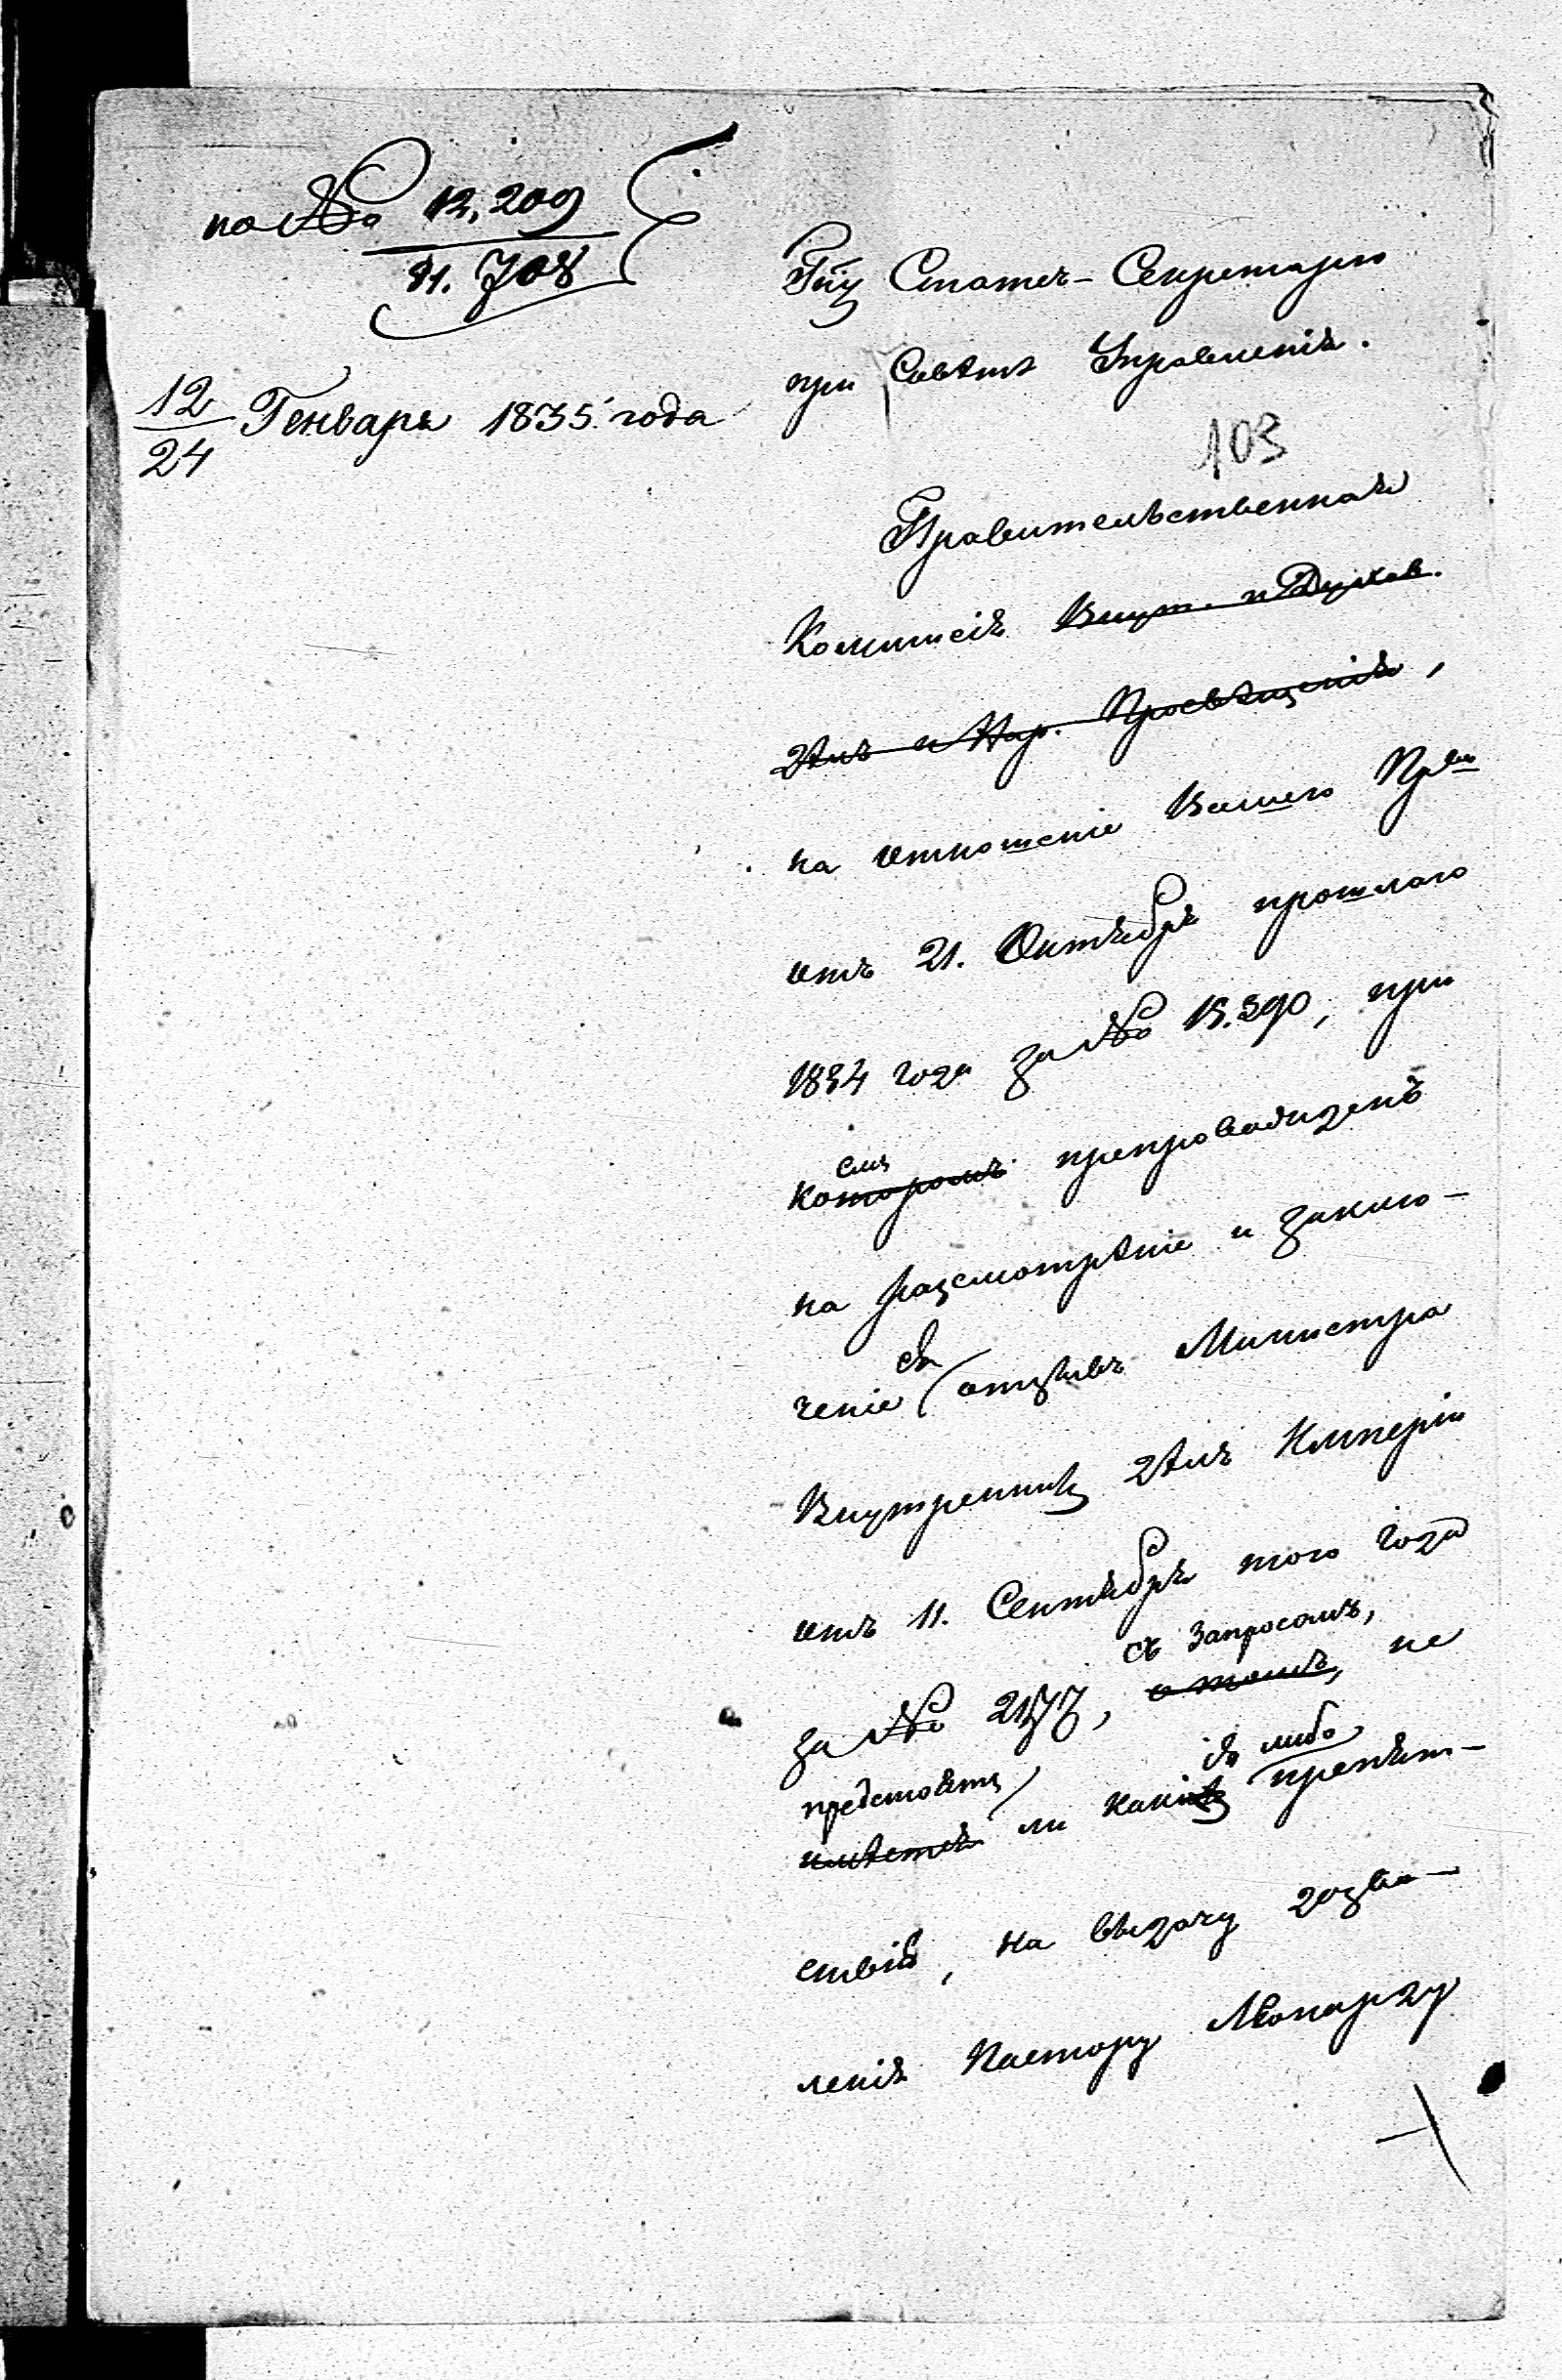 по № 12,209
11.708
12/24 Генваря 1835. года
Гну Статсъ-Секретарю
при Совѣтѣ Управленія.
103
Правительственная
Коммисія Внут. и Духов.
дѣлъ и Нар. Просвѣщенія,
на отношеніе Вашего
отъ 21. Октября прошлаго
1834 года за № 15.390, при
которомъ препровожденъ
на разсмотрѣніе и заклю-
ченіе отзывъ Министра
Внутреннихъ дѣлъ Имперіи
отъ 11. Сентября того года
съ запросомъ,
за № 2177, о томъ, не
предстоитъ
имѣется ли какихъ либо препят-
ствій, на выдачу дозво-
ленія Пастору Леонарду